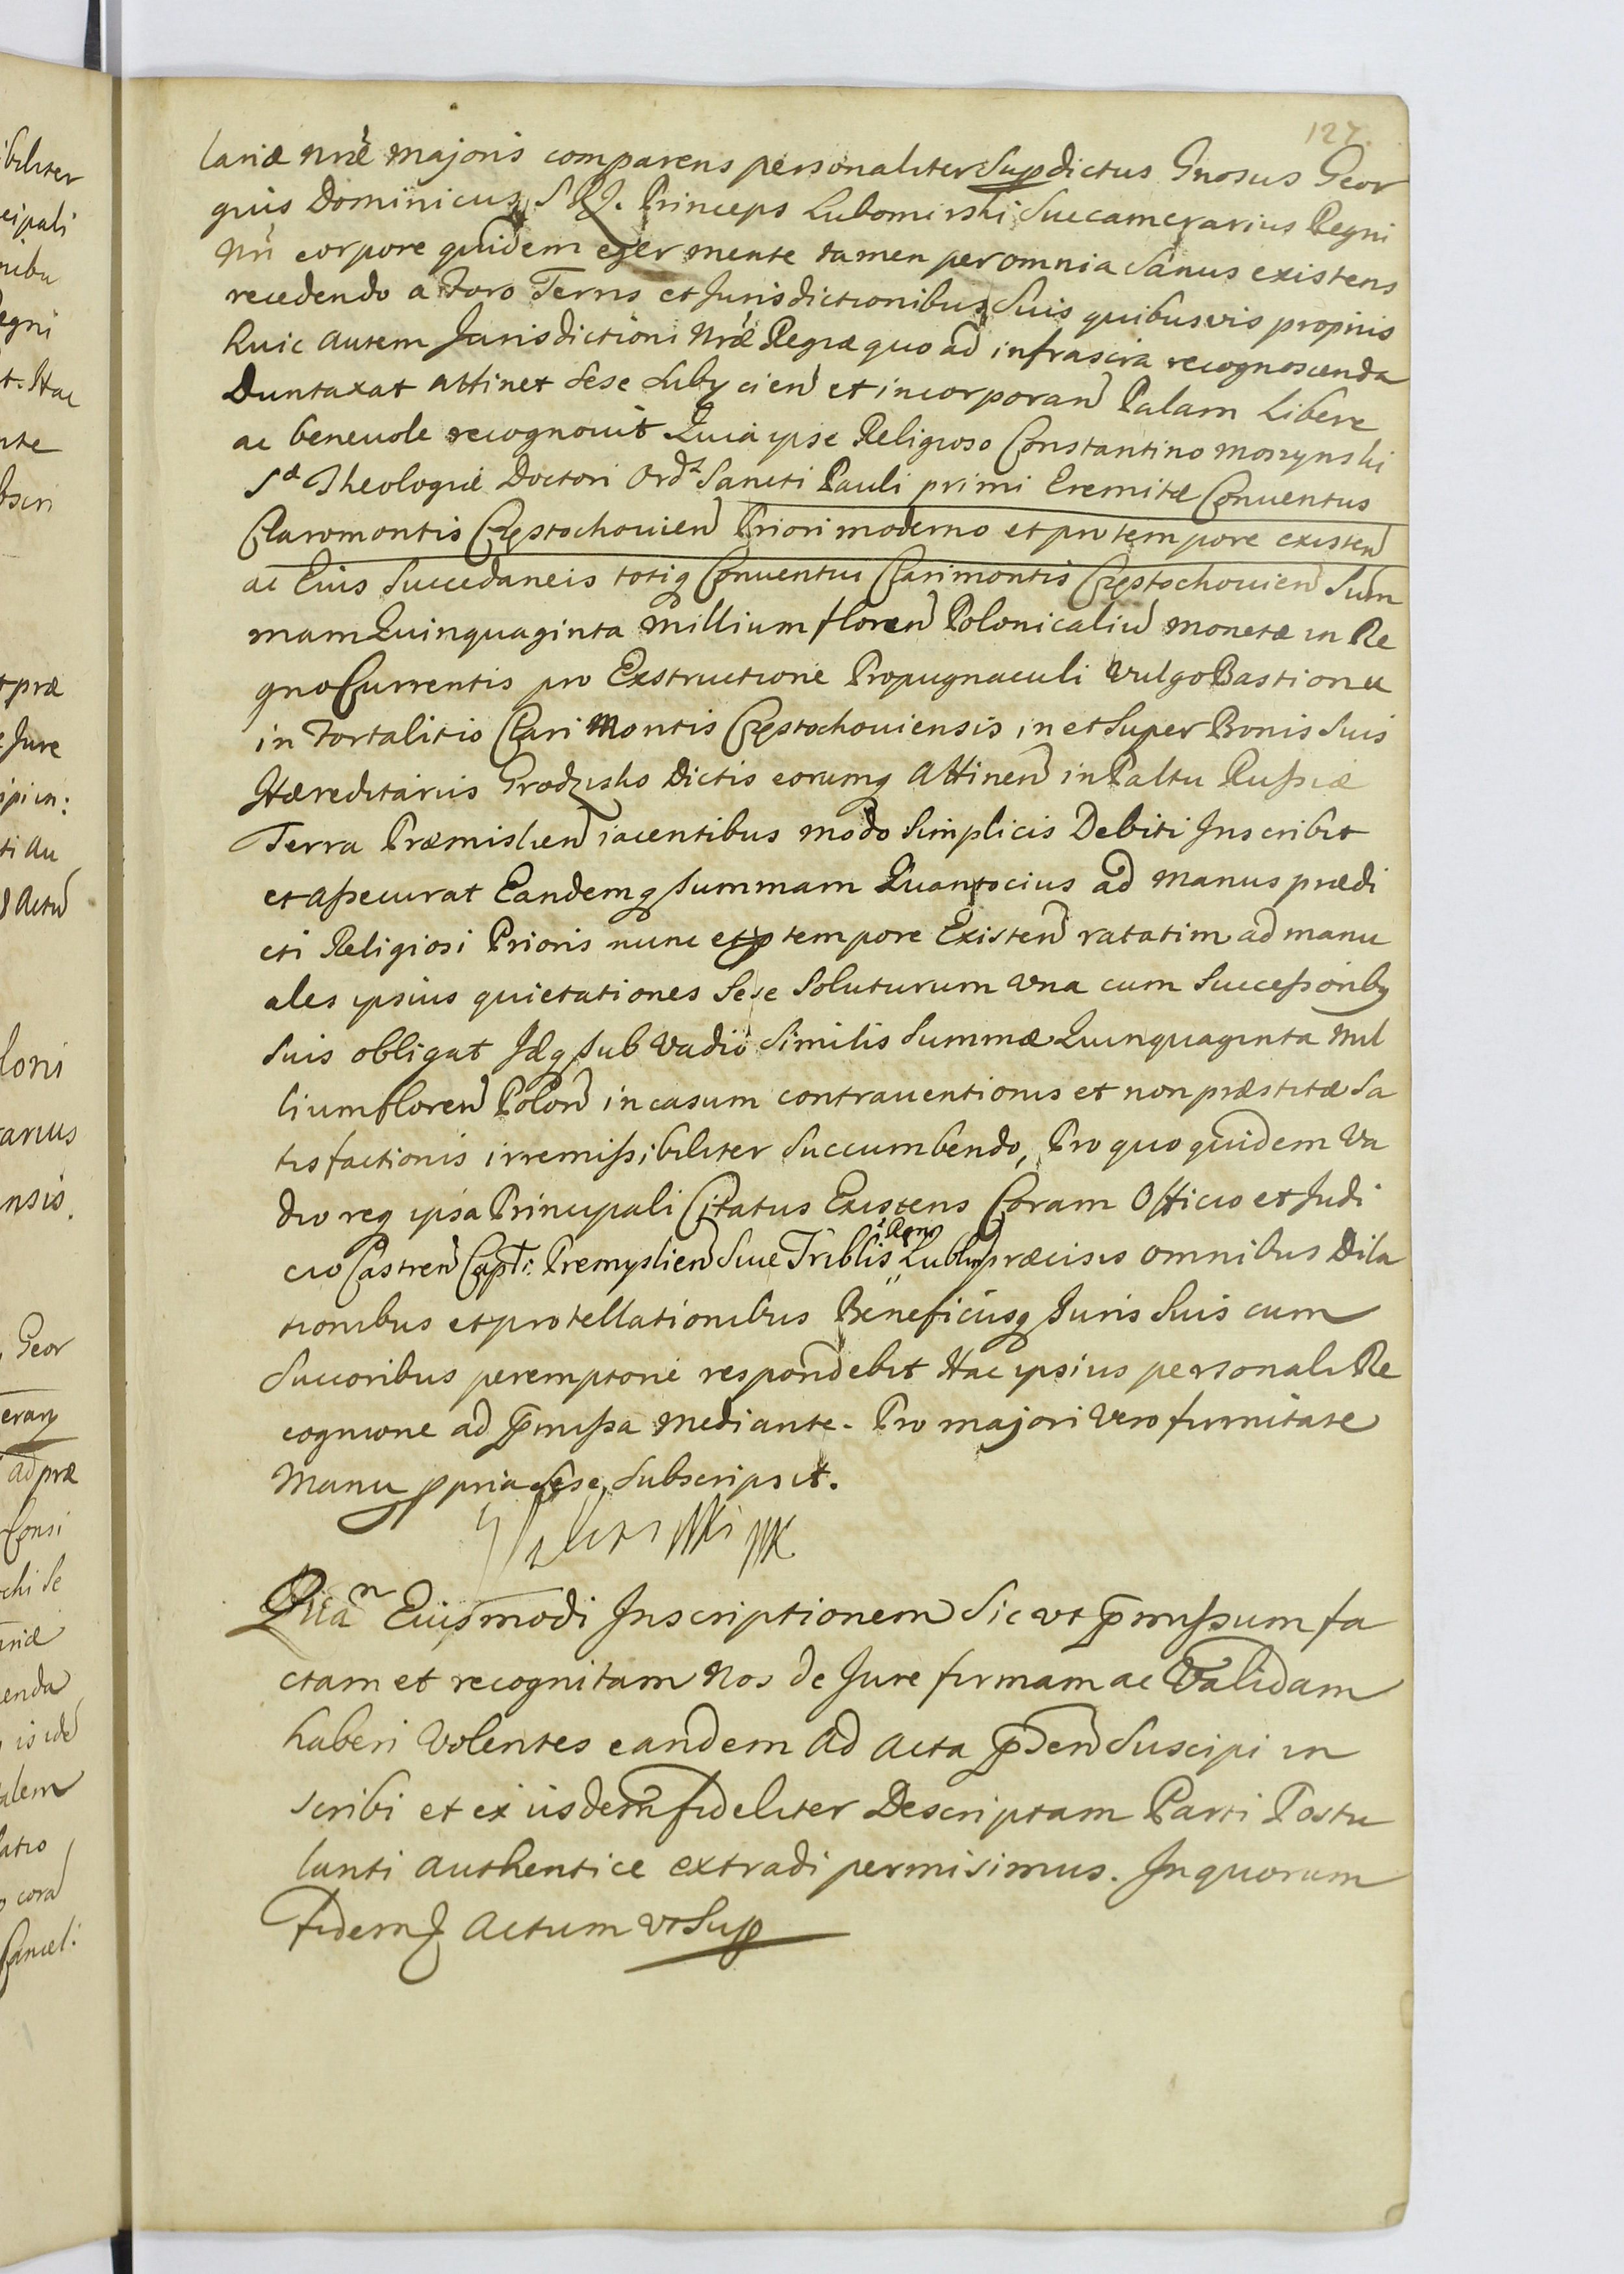 127.
lariæ nræ majoris comparens personaliter Supdictus Gnosus Geor
gius Dominicus S R J. Princeps Lubomirski Succamerarius Regni
Nri corpore quidem eger mente tamen per omnia Sanus existens
recedendo a Foro Terris et Jurisdictionibus Suis quibusvis propriis
huic autem Jurisdictioni Nræ Regiæ quo ad infrascra recognoscenda
Duntaxat attinet Sese Subycien et incorporan Palam Libere
ac beneuole recognouit Quia ipse Religioso Constantino moszynski
S Theologiæ Doctori Ord Sancti Pauli primi Eremitæ Conuentus
Claromontis Częstochouien Priori moderno et pro tempore existen
ac Eius Succedaneis totiq Conuentui Clarimontis Częstochouien Sum
mam Quinquaginta Millium floren Polonicaliu monetæ in Re
gno Currentis pro Exstructione Propugnaculi vulgo Bastionu
in Fortalitio Clari Montis Częstochouiensis in et Super Bonis Suis
Hæreditariis Grodzisko Dictis eorumq Attinen in Paltu Russiæ
Terra Præmislien iacentibus modo Simplicis Debiti Inscribit
et assecurat Eandemq Summam Quantocius ad manus prædi
cti Religiosi Prioris nunc et p tempore Existen ratatim ad manu
ales ipsius quietationes Sese Soluturum vna cum Successoriby
Suis obligat Idq sub vadio Similis Summæ Quinquaginta Mil
lium floren Polon in casum contrauentionis et non præstitæ Sa
tisfactionis irremissibiliter Succumbendo, Pro quo quidem Va
dio req ipsa Principali Citatus Existens Coram Officio et Judi
cio Castren Capt: Premyslien Siue Triblis Regni Lublin præcisis omnibus Dila
tionibus et protellationibus Beneficiisq Juris Suis cum
Succoribus peremptorie respondebit Hac ipsius personali Re
cognione ad pmissa mediante. Pro majori Vero firmitate
Manu ppria Sese Subscripsit.
Eiusmodi Inscriptionem Sic vt pmissum fa
ctam et recognitam Nos de Jure firmam ac Validam
haberi Volentes eandem ad acta pden Suscipi in
scribi et ex iisdem fideliter Descriptam Parti Postu
lanti authentice extradi permisimus. In quorum
fidem Actum vt Sup